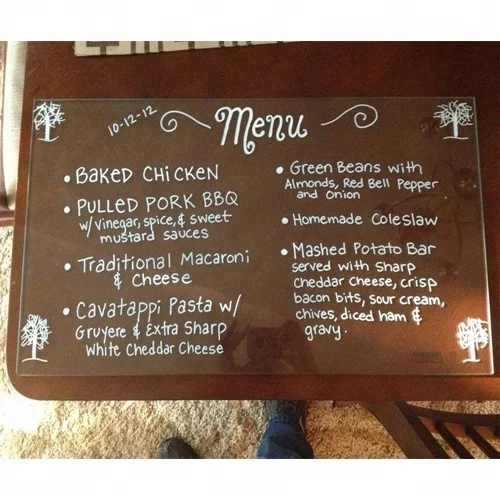 10-12-12
Menu
• BAKED CHICKEN
• PULLED PORK BBQ
w/ vinegar, spice, & sweet
mustard sauces
• Traditional Macaroni
& Cheese
• Cavatappi Pasta w/
Gruyere & Extra Sharp
White Cheddar Cheese
• Green Beans with
Almonds, Red Bell Pepper
and Onion
• Homemade Coleslaw
• Mashed Potato Bar
served with sharp
cheddar cheese, crisp
bacon bits, sour cream,
chives, diced ham &
gravy.